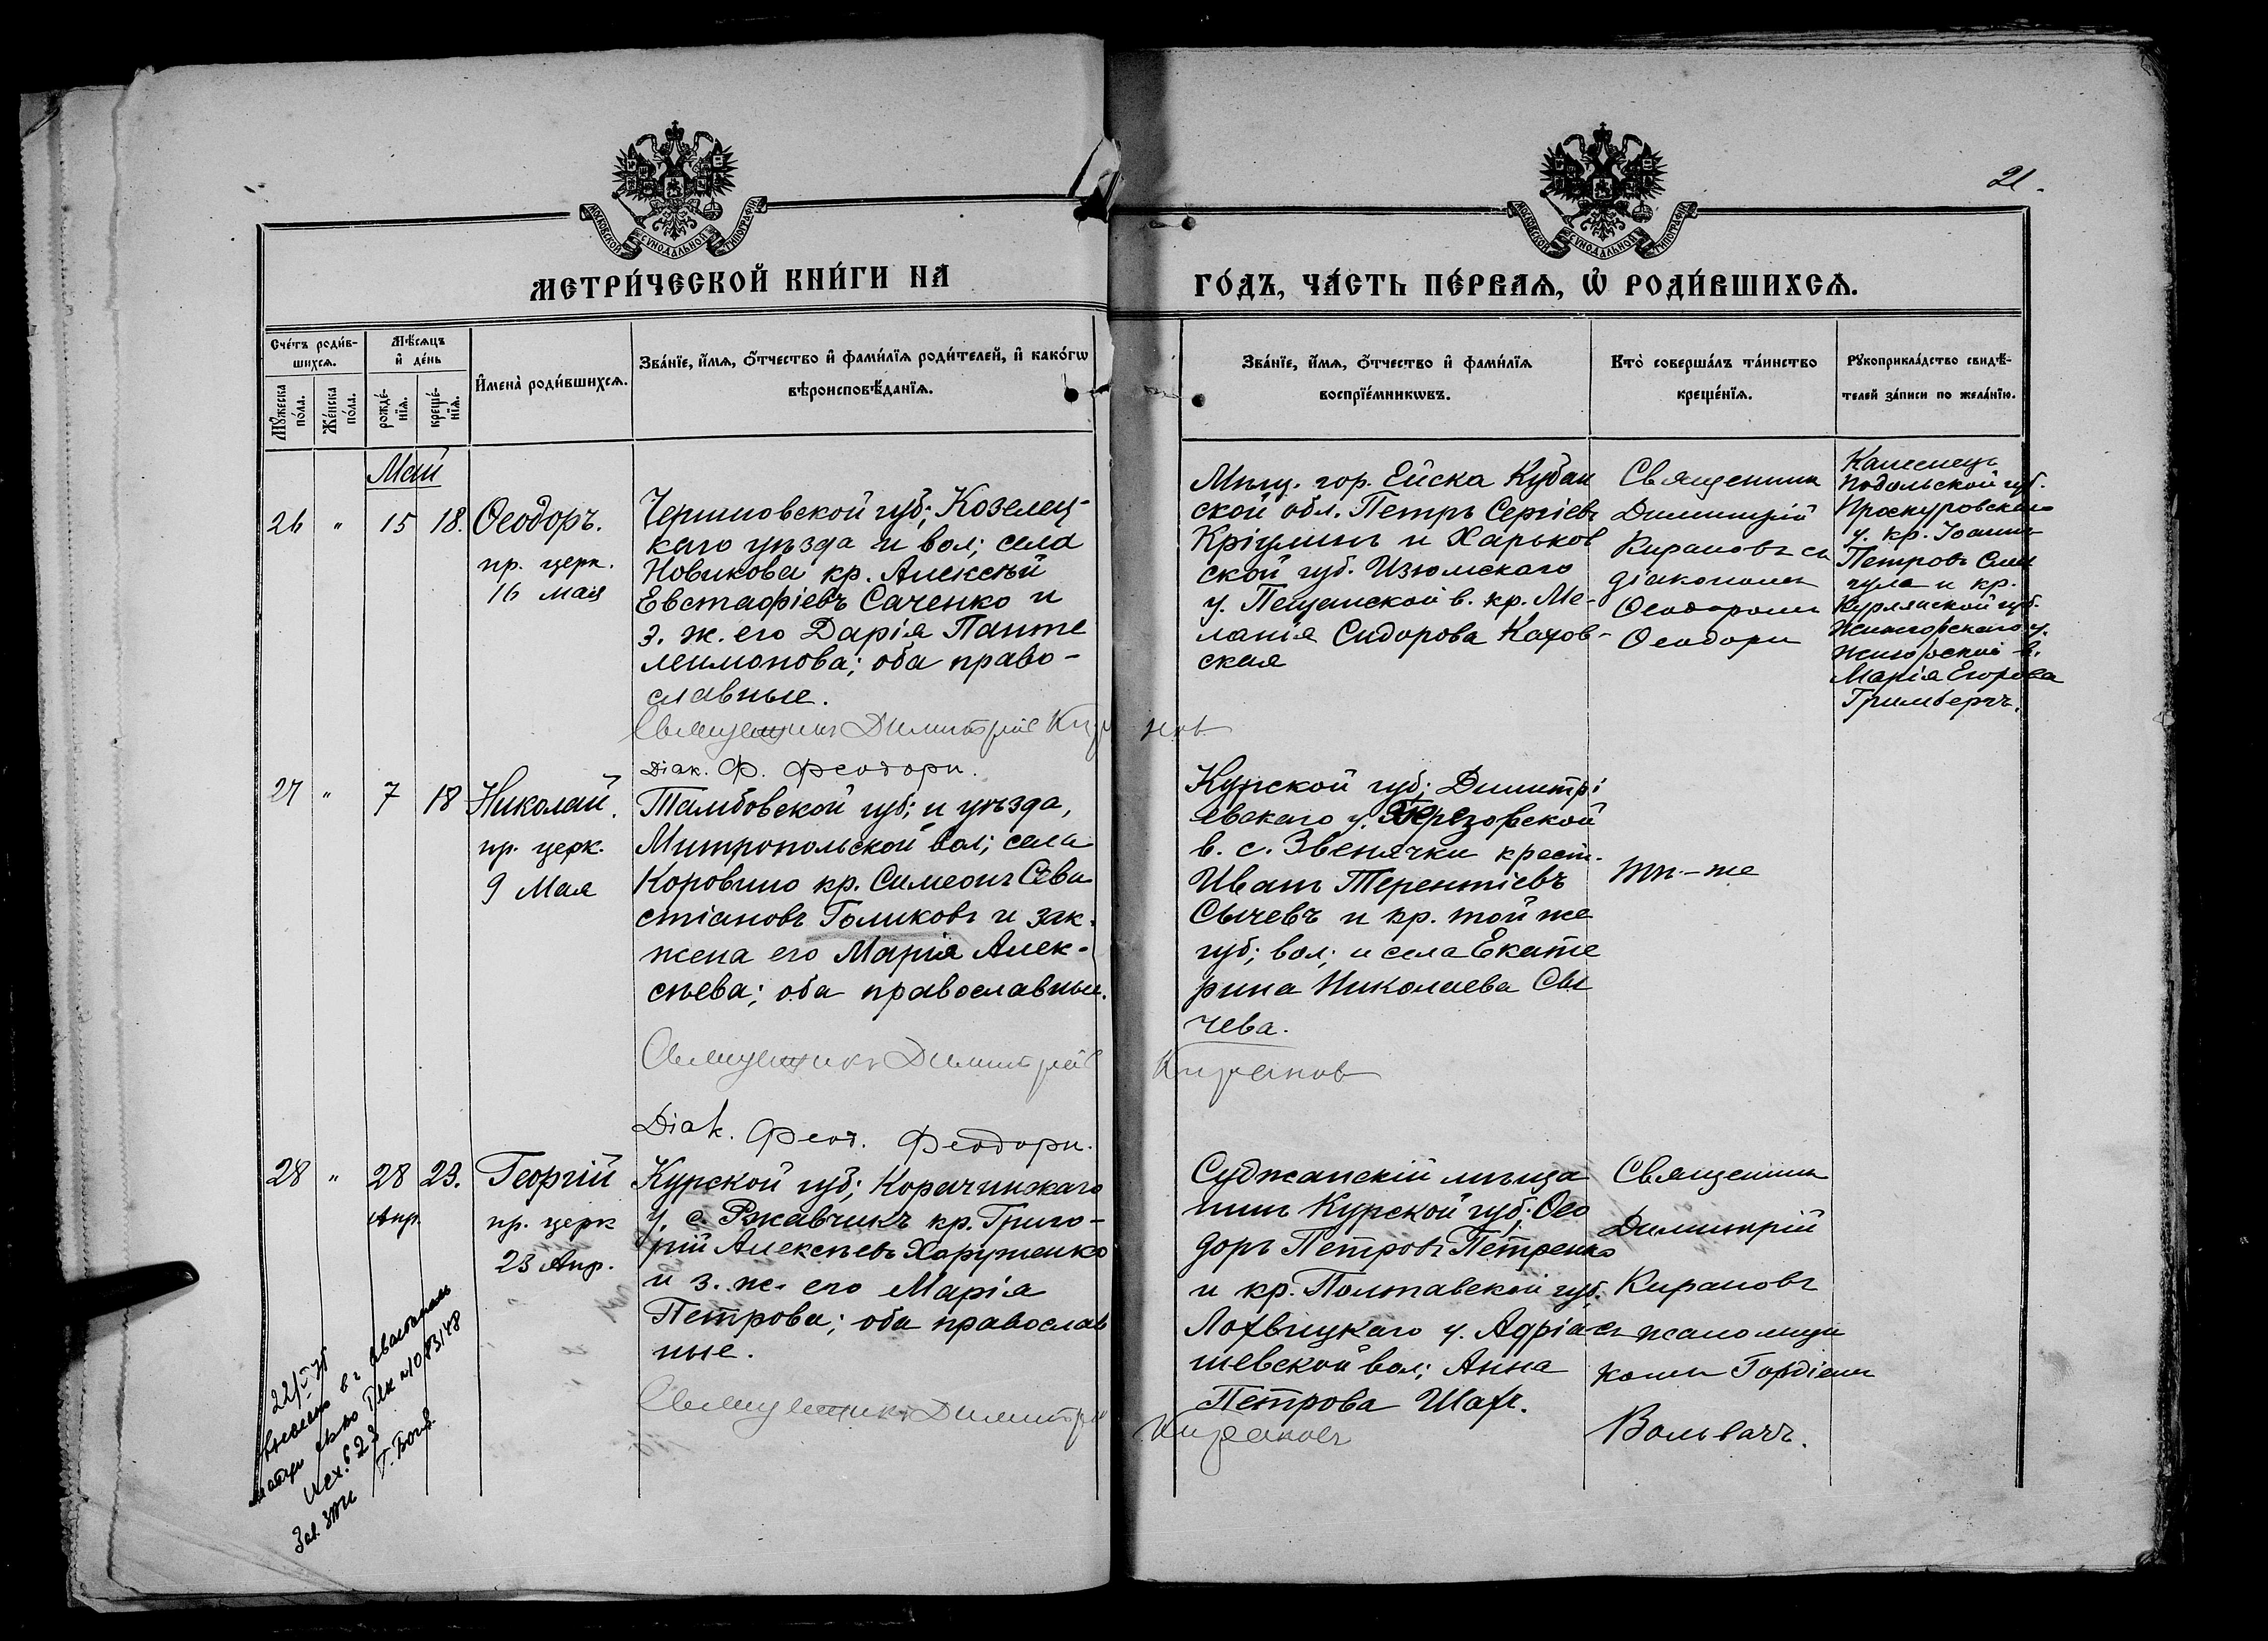 21.
МОСКОВСКОЙ СѴНОДАЛЬНОЙ ТИПОГРАФІИ
МОСКОВСКОЙ СѴНОДАЛЬНОЙ ТИПОГРАФІИ
МЕТРИ́ЧЕСКОЙ КНИ́ГИ НА
ГО́ДЪ, ЧА́СТЬ ПЕ́РВАѦ, Ѽ РОДИ́ВШИХСѦ.
Сче́тъ роди́в-
шихсѧ.
Мꙋ́жеска по́ла.
Же́нска по́ла.
Мѣ́сѧцъ
и҆ де́нь
рожде́-
нїѧ.
креще́-
нїѧ.
И҆мена̀ роди́вшихсѧ.
Зва́нїе, и҆́мѧ, ѻ҆́тчество и҆ фами́лїѧ роди́телей, и҆ како́гѡ
вѣроисповѣ́данїѧ.
Зва́нїе, и҆́мѧ, ѻ҆́тчество и҆ фами́лїѧ
воспрїе́мникѡвъ.
Кто̀ соверша́лъ та́инство
креще́нїѧ.
Рꙋкоприкла́дство свидѣ́-
телей за́писи по жела́нїю.
Май
26 " 15 18. Ѳеодоръ.
пр. церк.
16 мая
Черниговской губ; Козелец-
каго уѣзда и вол; села
Новикова кр. Алексѣй
Евстафіевъ Саченко и
з. ж. его Дарія Панте
леимонова; оба право-
славные.
Священникъ Димитрій Киранов
Діак. Ф. Феодори.
Мѣщ. гор. Ейска Кубан
ской обл. Петръ Сергіевъ
и Харьков
ской губ. Изюмскаго
у. Пещанской в. кр. Ме-
ланія Сидорова Кахов-
ская
Священник
Димитрій
Кирановъ съ
діакономъ
Ѳеодоромъ
Ѳеодори
Каменец
Подольской губ.
Проскуровскаго
у. кр. Іоаннъ
Петровъ
и кр.
Курлянской губ.
Марія Егорова
Гримбергъ.
27 " 7 18 Николай.
пр. церк.
9 Мая
Тамбовской губ; и уѣзда,
Митропольской вол; села
Коровино кр. Симеонъ Сева
стіановъ Голиковъ и зак.
жена его Марія Алек-
сѣева; оба православные.
Священникъ Димитрій Киранов
Діак. Феод. Феодори.
Курской губ; Димитрі
евскаго у. Березовской
в. с. Звенячки крест.
Иванъ Терентіевъ
Сычевъ и кр. той же
губ; вол; и села Екате
рина Николаева Сы
чева.
тѣ-же
28 " 28 29. Георгій
Апр.
пр. церк
23 Апр.
Курской губ; Корачинжаго
у. с. Ржавчикъ кр. Григо-
рій Алексѣевъ Харуженко
и з. ж. его Марія
Петрова; оба православ
ные.
Священникъ Димитрій Киранов
Суджанскій мѣща
нинъ Курской губ; Ѳео
доръ Петровъ Петренко
и кр. Полтавской губ.
Лохвицкаго у. Адріа
шевской вол; Анна
Петрова Шах.
Священник
Димитрій
Кирановъ
съ псаломщи
комъ Гордіемъ
Вольвачъ.